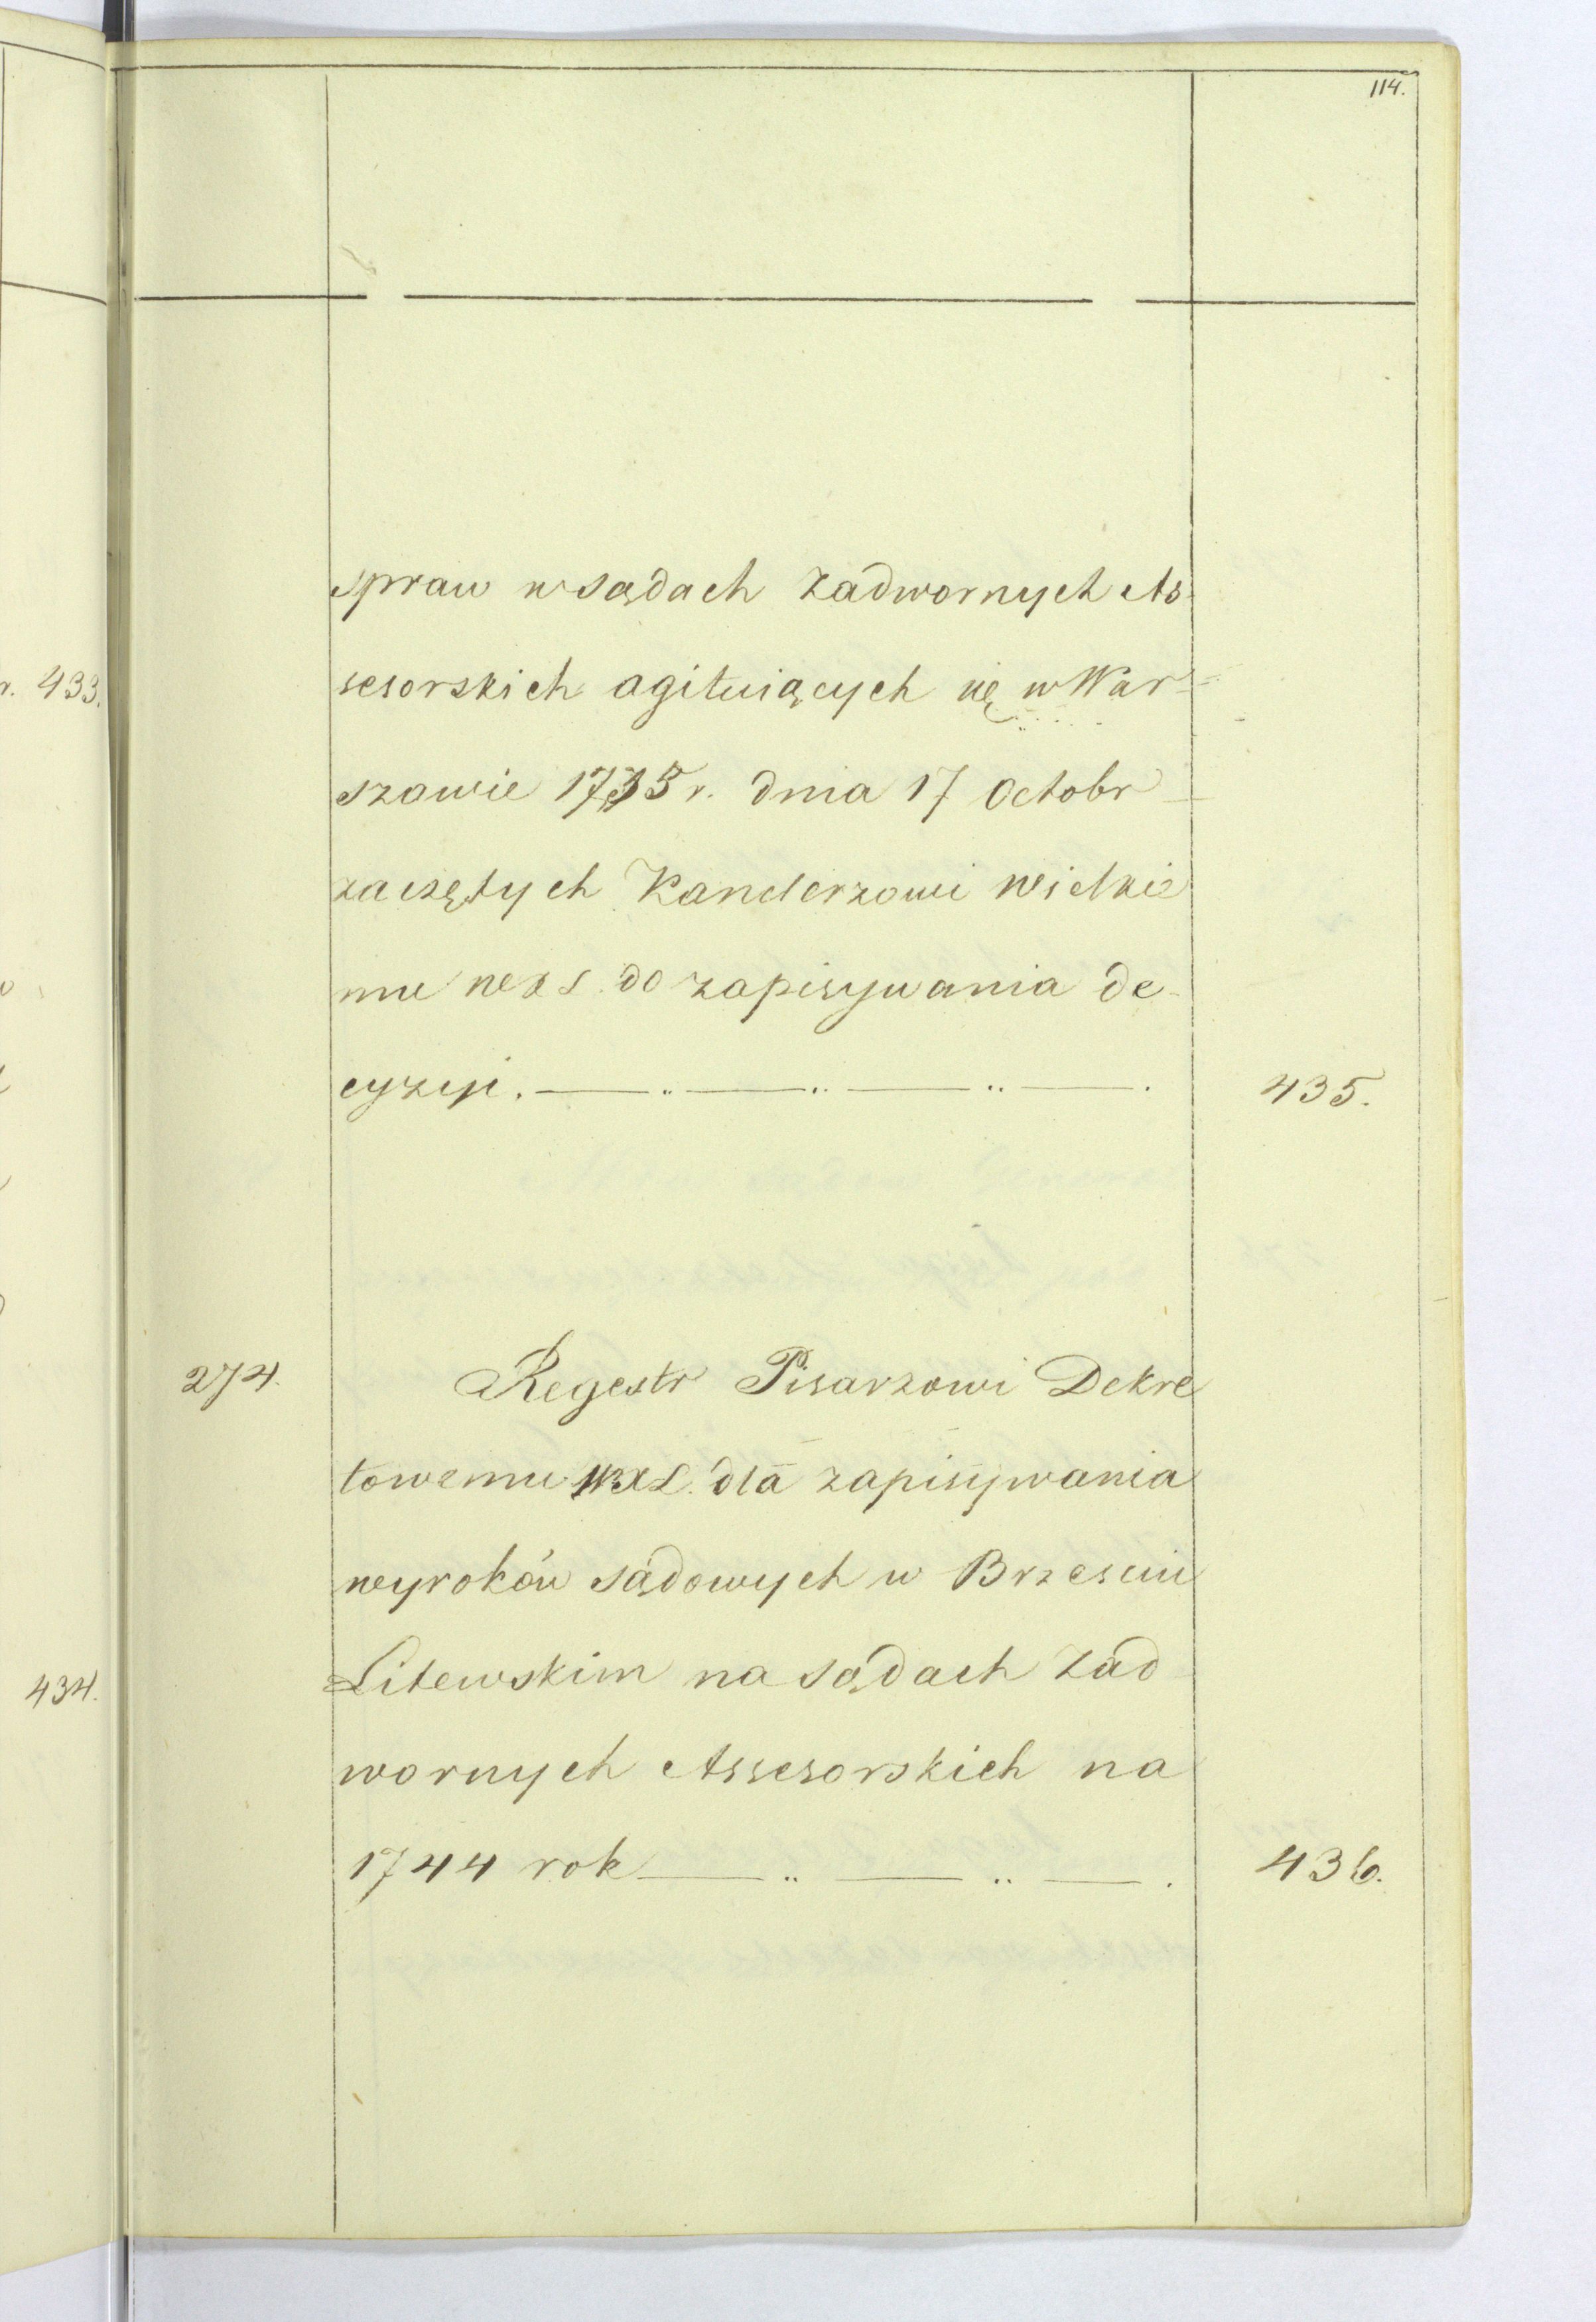 114.
spraw w sądach zadwornych As
sesorskich agituiących się w War=
szawie 1735 r. dnia 17 Octobr
zaczętych Kanclerzowi wielkie
mu WXL do zapisywania de-
cyzyi. 435.
274. Regestr Pisarzowi Dekre
towemu WXL. dla zapisywania
wyroków sądowych w Brzesciu
Litewskim na sądach zad
wornych Assesorskich na
1744 rok 436.
r. 433.
434.